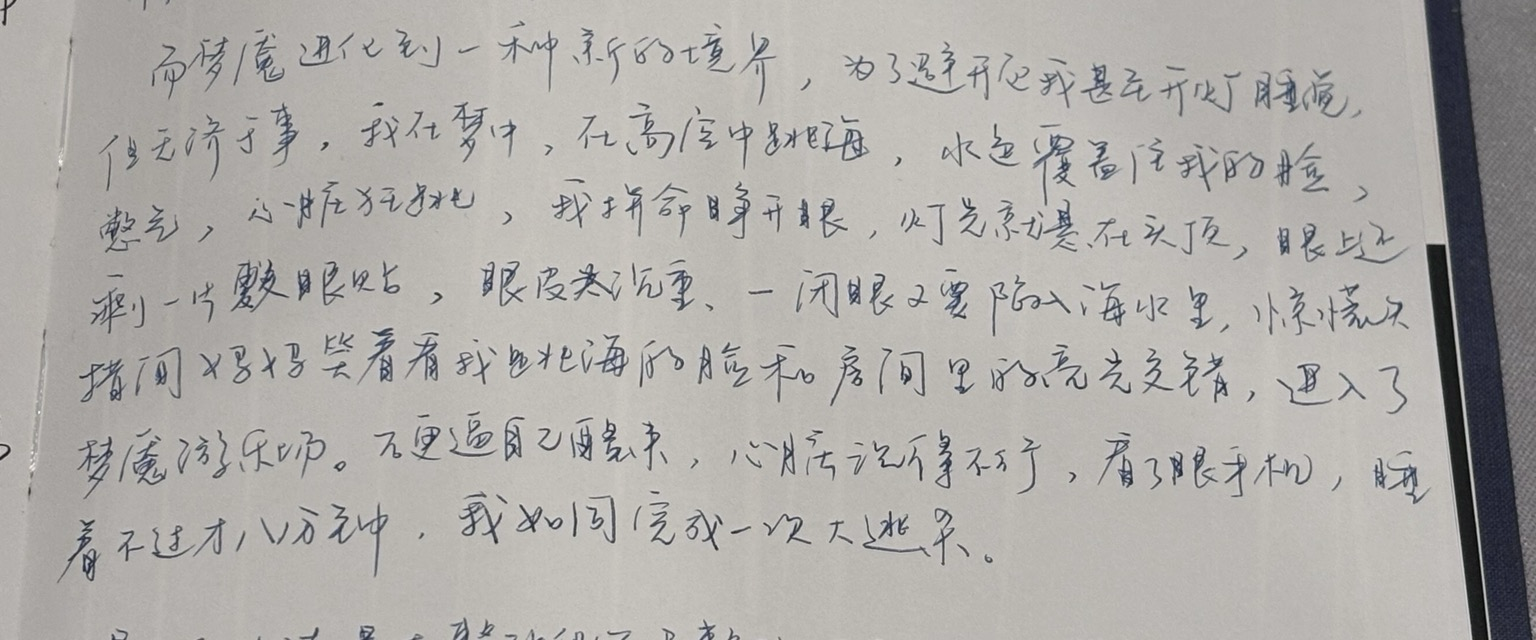 而梦魇进化到一种新的境界，为了避开它我甚至开灯睡觉，
但无济于事，我在梦中，在高空中跳海，水色覆盖住我的脸，
憋气，心脏狂跳，我拼命睁开眼，灯光就悬在头顶，眼上还
剩一片敷眼贴，眼皮太沉重、一闭眼又要陷入海水里，惊慌失
措间妈妈笑着看我跳海的脸和房间里的亮光交错，进入了
梦魇游乐场。不更逼自己醒来，心脏沉得不行，看了眼手机，睡
着不过才八分钟，我如同完成一次大逃杀。